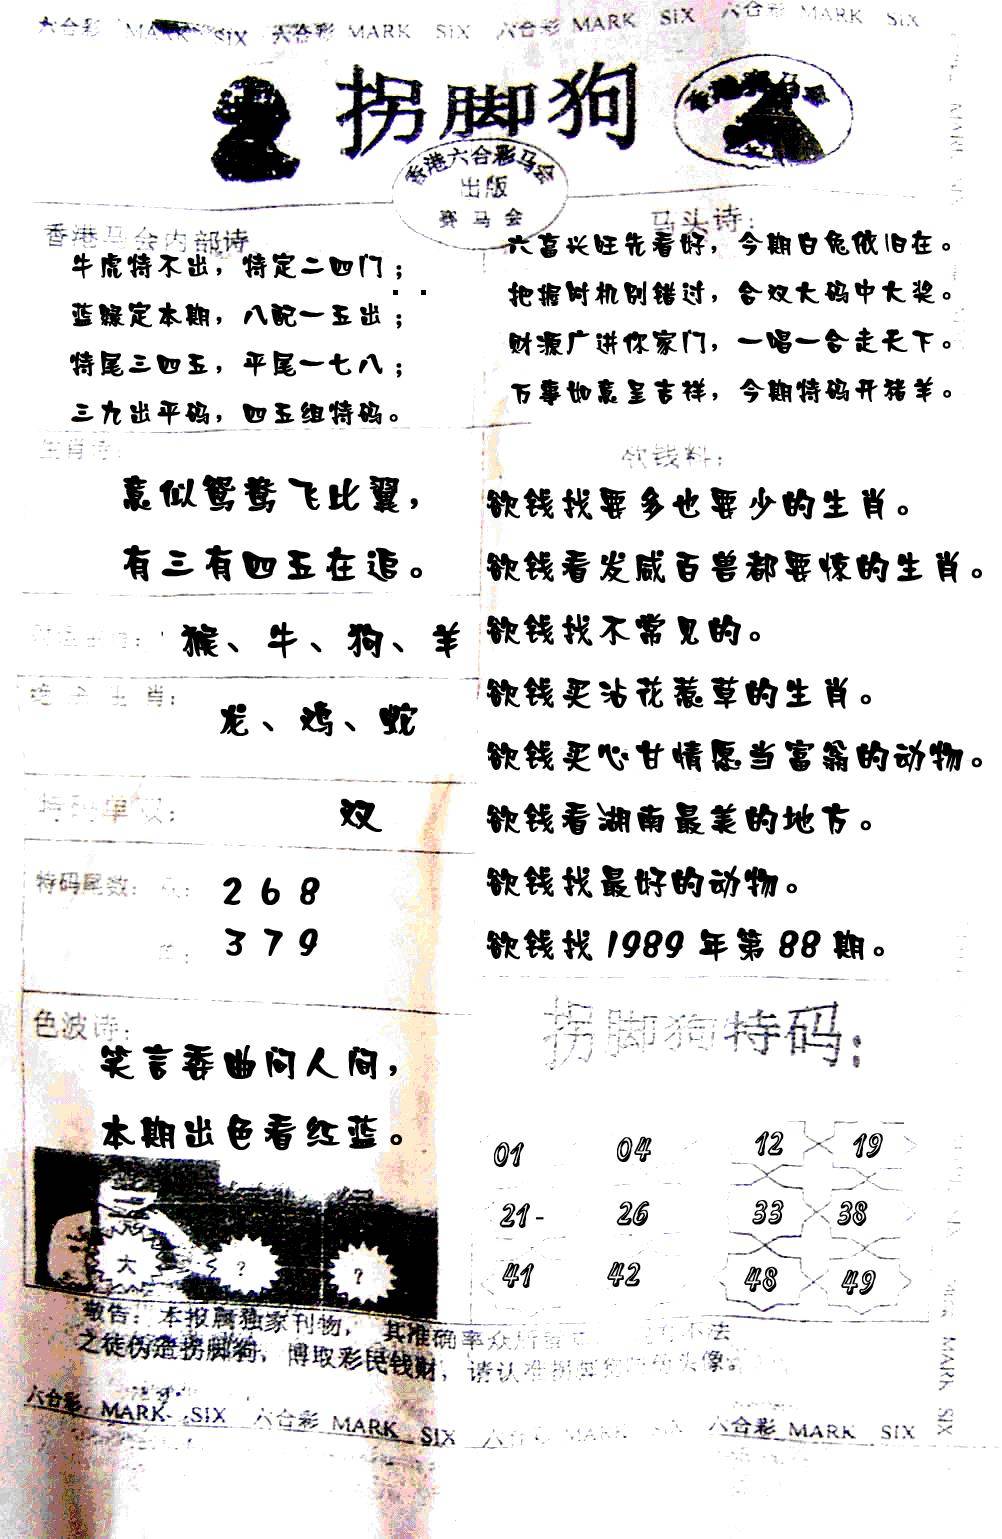 六合彩 MARK SIX 六合彩 MARK SIX 六合彩 MARK SIX 六合彩 MARK SIX
拐脚狗
香港六合彩马会
出版
赛马会
香港马会内部诗:
牛虎特不出，特定二四门；
蓝绿定本期，八配一五出；
特尾三四五，平尾一七八；
三九出平码，四五组特码。
马头诗:
六畜兴旺先看好，今期白兔依旧在。
把握时机别错过，合双大码中大奖。
财源广进你家门，一唱一合走天下。
万事如意呈吉祥，今期特码开猪羊。
生肖诗:
意似鸳鸯飞比翼，
有三有四五在追。
猴、牛、狗、羊
绝杀生肖:
龙、鸡、蛇
特码单双:
双
特码尾数:
2 6 8
3 7 9
色波诗:
笑言委曲问人间，
本期出色看红蓝。
大 ? ?
欲钱料:
欲钱找要多也要少的生肖。
欲钱看发威百兽都要惊的生肖。
欲钱找不常见的。
欲钱买沾花惹草的生肖。
欲钱买心甘情愿当富翁的动物。
欲钱看湖南最美的地方。
欲钱找最好的动物。
欲钱找1989年第88期。
拐脚狗特码:
01 04 12 19
21- 26 33 38
41 42 48 49
敬告: 本报属独家刊物， 其准确率众所 不法
之徒伪造拐脚狗，博取彩民钱财，请认准拐脚狗 头像。
六合彩 MARK SIX 六合彩 MARK SIX 六合彩 MARK SIX 六合彩 MARK SIX
MARK SIX